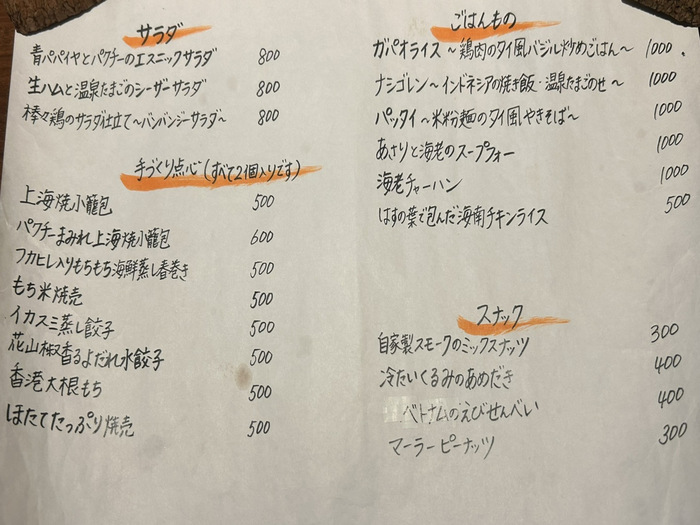 サラダ
青パパイヤとパクチーのエスニックサラダ 800
生ハムと温泉たまごのシーザーサラダ 800
棒々鶏のサラダ仕立て〜バンバンジーサラダ〜 800
手づくり点心(すべて2個入りです)
上海焼小籠包 500
パクチーまみれ上海焼小籠包 600
フカヒレ入りもちもち海鮮蒸し春巻き 500
もち米焼売 500
イカスミ蒸し餃子 500
花山椒香るよだれ水餃子 500
香港大根もち 500
ほたてたっぷり焼売 500
ごはんもの
ガパオライス〜鶏肉のタイ風バジル炒めごはん〜 1000
ナシゴレン〜インドネシアの焼き飯・温泉たまごのせ〜 1000
パッタイ〜米粉麺のタイ風やきそば〜 1000
あさりと海老のスープフォー 1000
海老チャーハン 1000
はすの葉で包んだ海南チキンライス 500
スナック
自家製スモークのミックスナッツ 300
冷たいくるみのあめだき 400
ベトナムのえびせんべい 400
マーラーピーナッツ 300